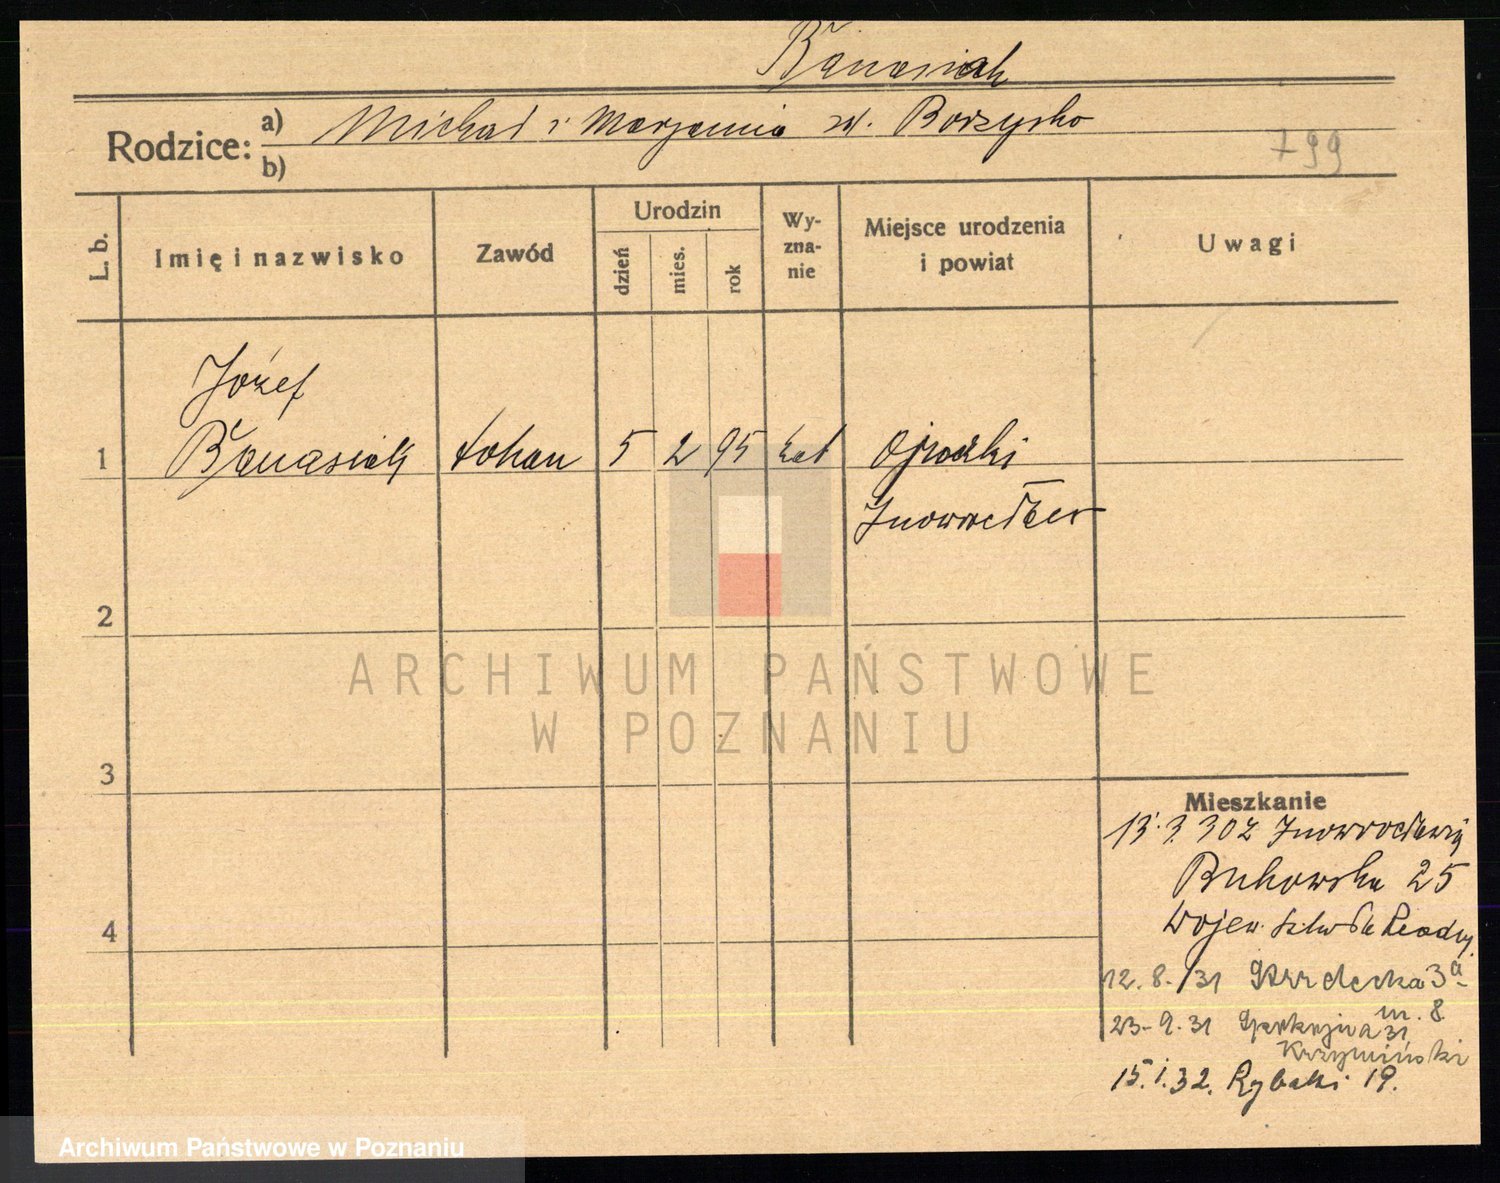 Banasiak
Rodzice: a) Michał i Marjanna zd. Borzysko
b)
799
L. b.
Imię i nazwisko
Zawód
Urodzin
dzień
mies.
rok
Wy-
zna-
nie
Miejsce urodzenia
i powiat
Uwagi
Józef
1 Banasiak tokarz 5 2 95 kat
Inowrocław
2
3
4
Mieszkanie
13.3.30 z Inowrocławia
Bukowska 25
Wojew. Radzy
12.8./31 3a
m. 8
23-9.31 Spokojna 31
Krzymiński
15.1.32. Rybaki 19.
ARCHIWUM PAŃSTWOWE
W POZNANIU
Archiwum Państwowe w Poznaniu